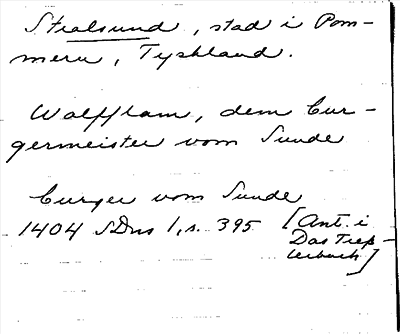 Stralsund, stad i Pom-
mern, Tyskland.
Wolfflam, dem bur-
germeister vom Sunde
burger vom Sunde
1404 SDns 1, s. 395 [Ant. i
Das Tresz-
lerbuch]